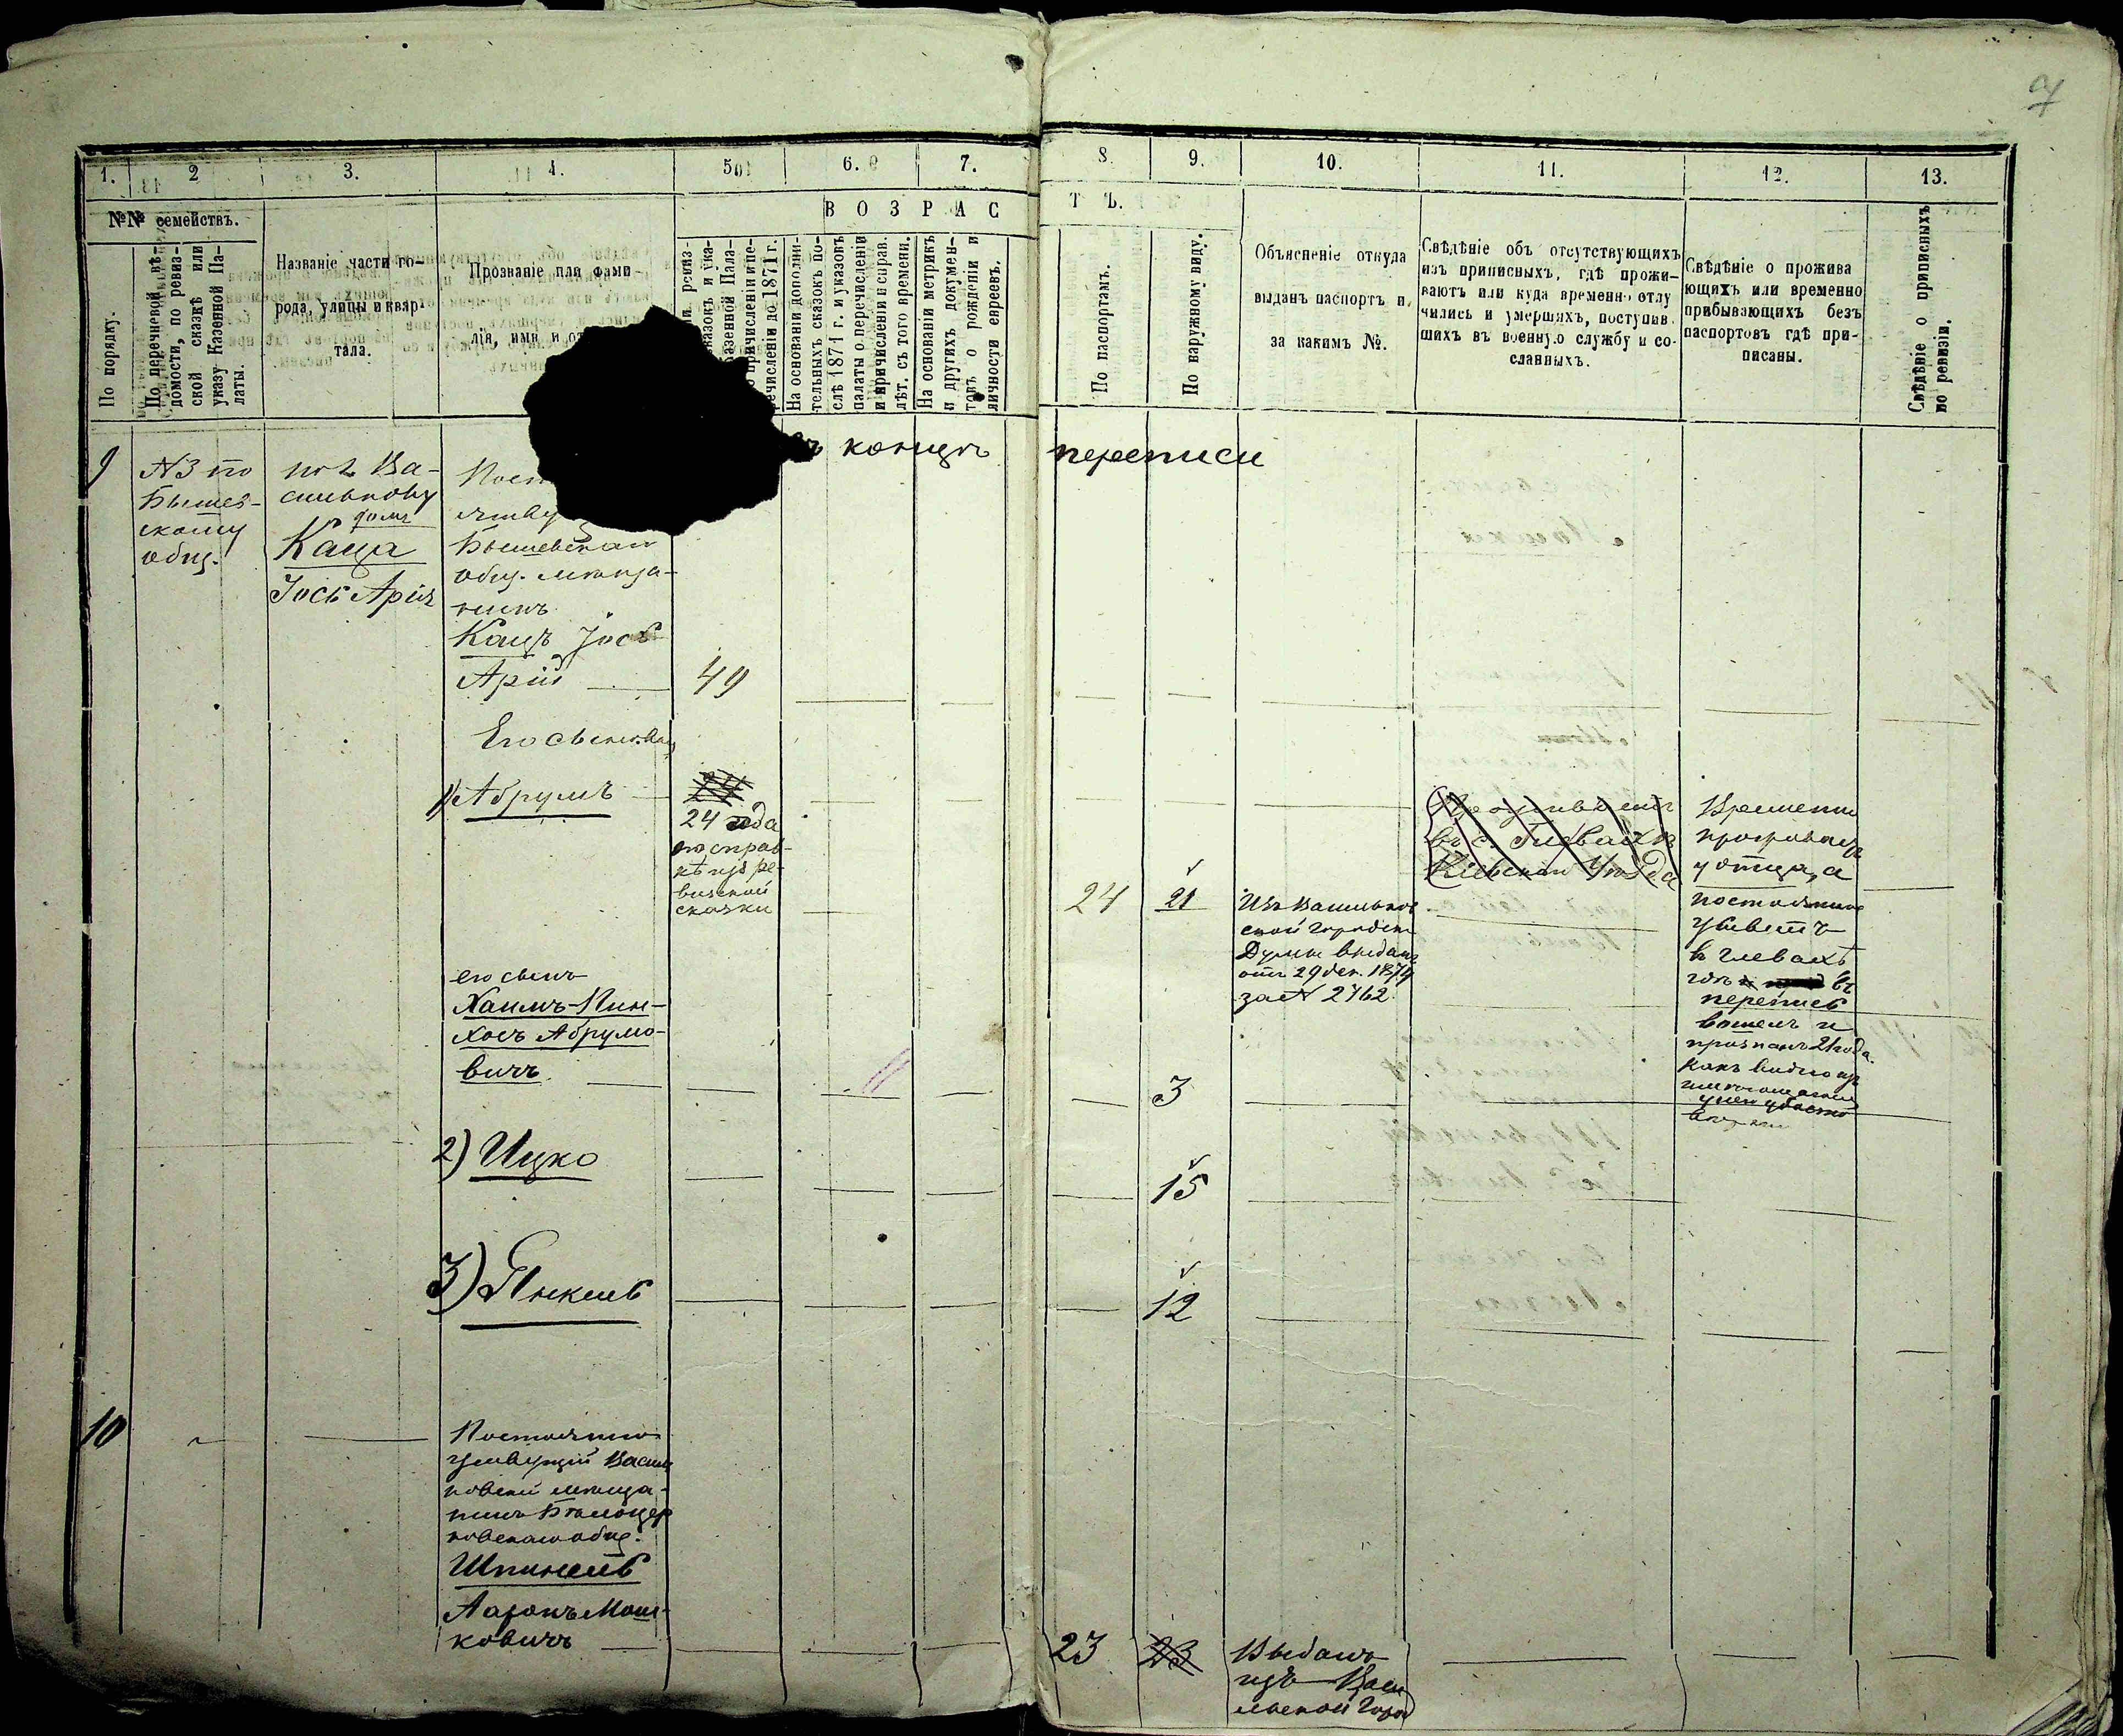 7
1. 2 3. 4. 5 6. 7. 8. 9. 10. 11. 12. 13.
№№ семействъ.
В О З Р А С Т Ъ.
По порядку.
По перечневой вѣ-
домости, по ревиз-
ской сказкѣ или
указу Казенной Па-
латы.
Названіе части го-
рода, улицы и квар-
тала.
Прозваніе или фами-
лія, имя и
ревиз-
казокъ и ука-
азенной Пала-
причисленіи и пе-
речисленіи до 1871 г.
На основаніи дополни-
тельныхъ сказокъ по-
слѣ 1871 г. и указовъ
палаты о перечисленіи
и причисленіи и справ.
лѣт. съ того времени.
На основаніи метрикъ
и другихъ докумен-
товъ о рожденіи и
личности евреевъ.
По паспортамъ.
По наружному виду.
Объясненіе откуда
выданъ паспортъ и
за какимъ №.
Свѣдѣніе объ отсутствующихъ
изъ приписныхъ, гдѣ прожи-
ваютъ или куда временно отлу
чились и умершихъ, поступив.
шихъ въ военную службу и со-
сланныхъ.
Свѣдѣніе о прожива
ющихъ или временно
прибывающихъ безъ
паспортовъ гдѣ при-
писаны.
Свѣдѣніе о приписныхъ
по ревизіи.
концѣ переписи
9
N3 по
Бышев-
скому
общ.
по г. Ва-
силькову
домъ
Каца
Іось Арія
Бышевскаго
общ. мѣща-
нинъ
Кацъ Іось
Арій 49
Его сыновья
1) Абрумъ
24
24 года
по справ-
кѣ изъ ре-
визской
сказки
24 21
Изъ Васильков
ской Городск
Думы выданъ
отъ 29 дек. 1874
за N 2762
Проживаетъ
въ с. Глевахѣ
Кіевскаго Уѣзда
Временно
проживаетъ
у отца, а
постоянно
живетъ
въ Глевахѣ
въ
перепись
вошелъ и
признанъ 21 года
какъ видно изъ
его сынъ
Хаимъ-Пин-
хосъ Абрумо-
вичъ 3
2) Ицко 15
3) Янкель 12
10
Постоянно
живущій Василь
ковскій мѣща-
нинъ Бѣлоцер
ковскаго общ.
Шпинель
Ааронъ Мош-
ковичъ 23 23
Выданъ
изъ Васи
льской Город